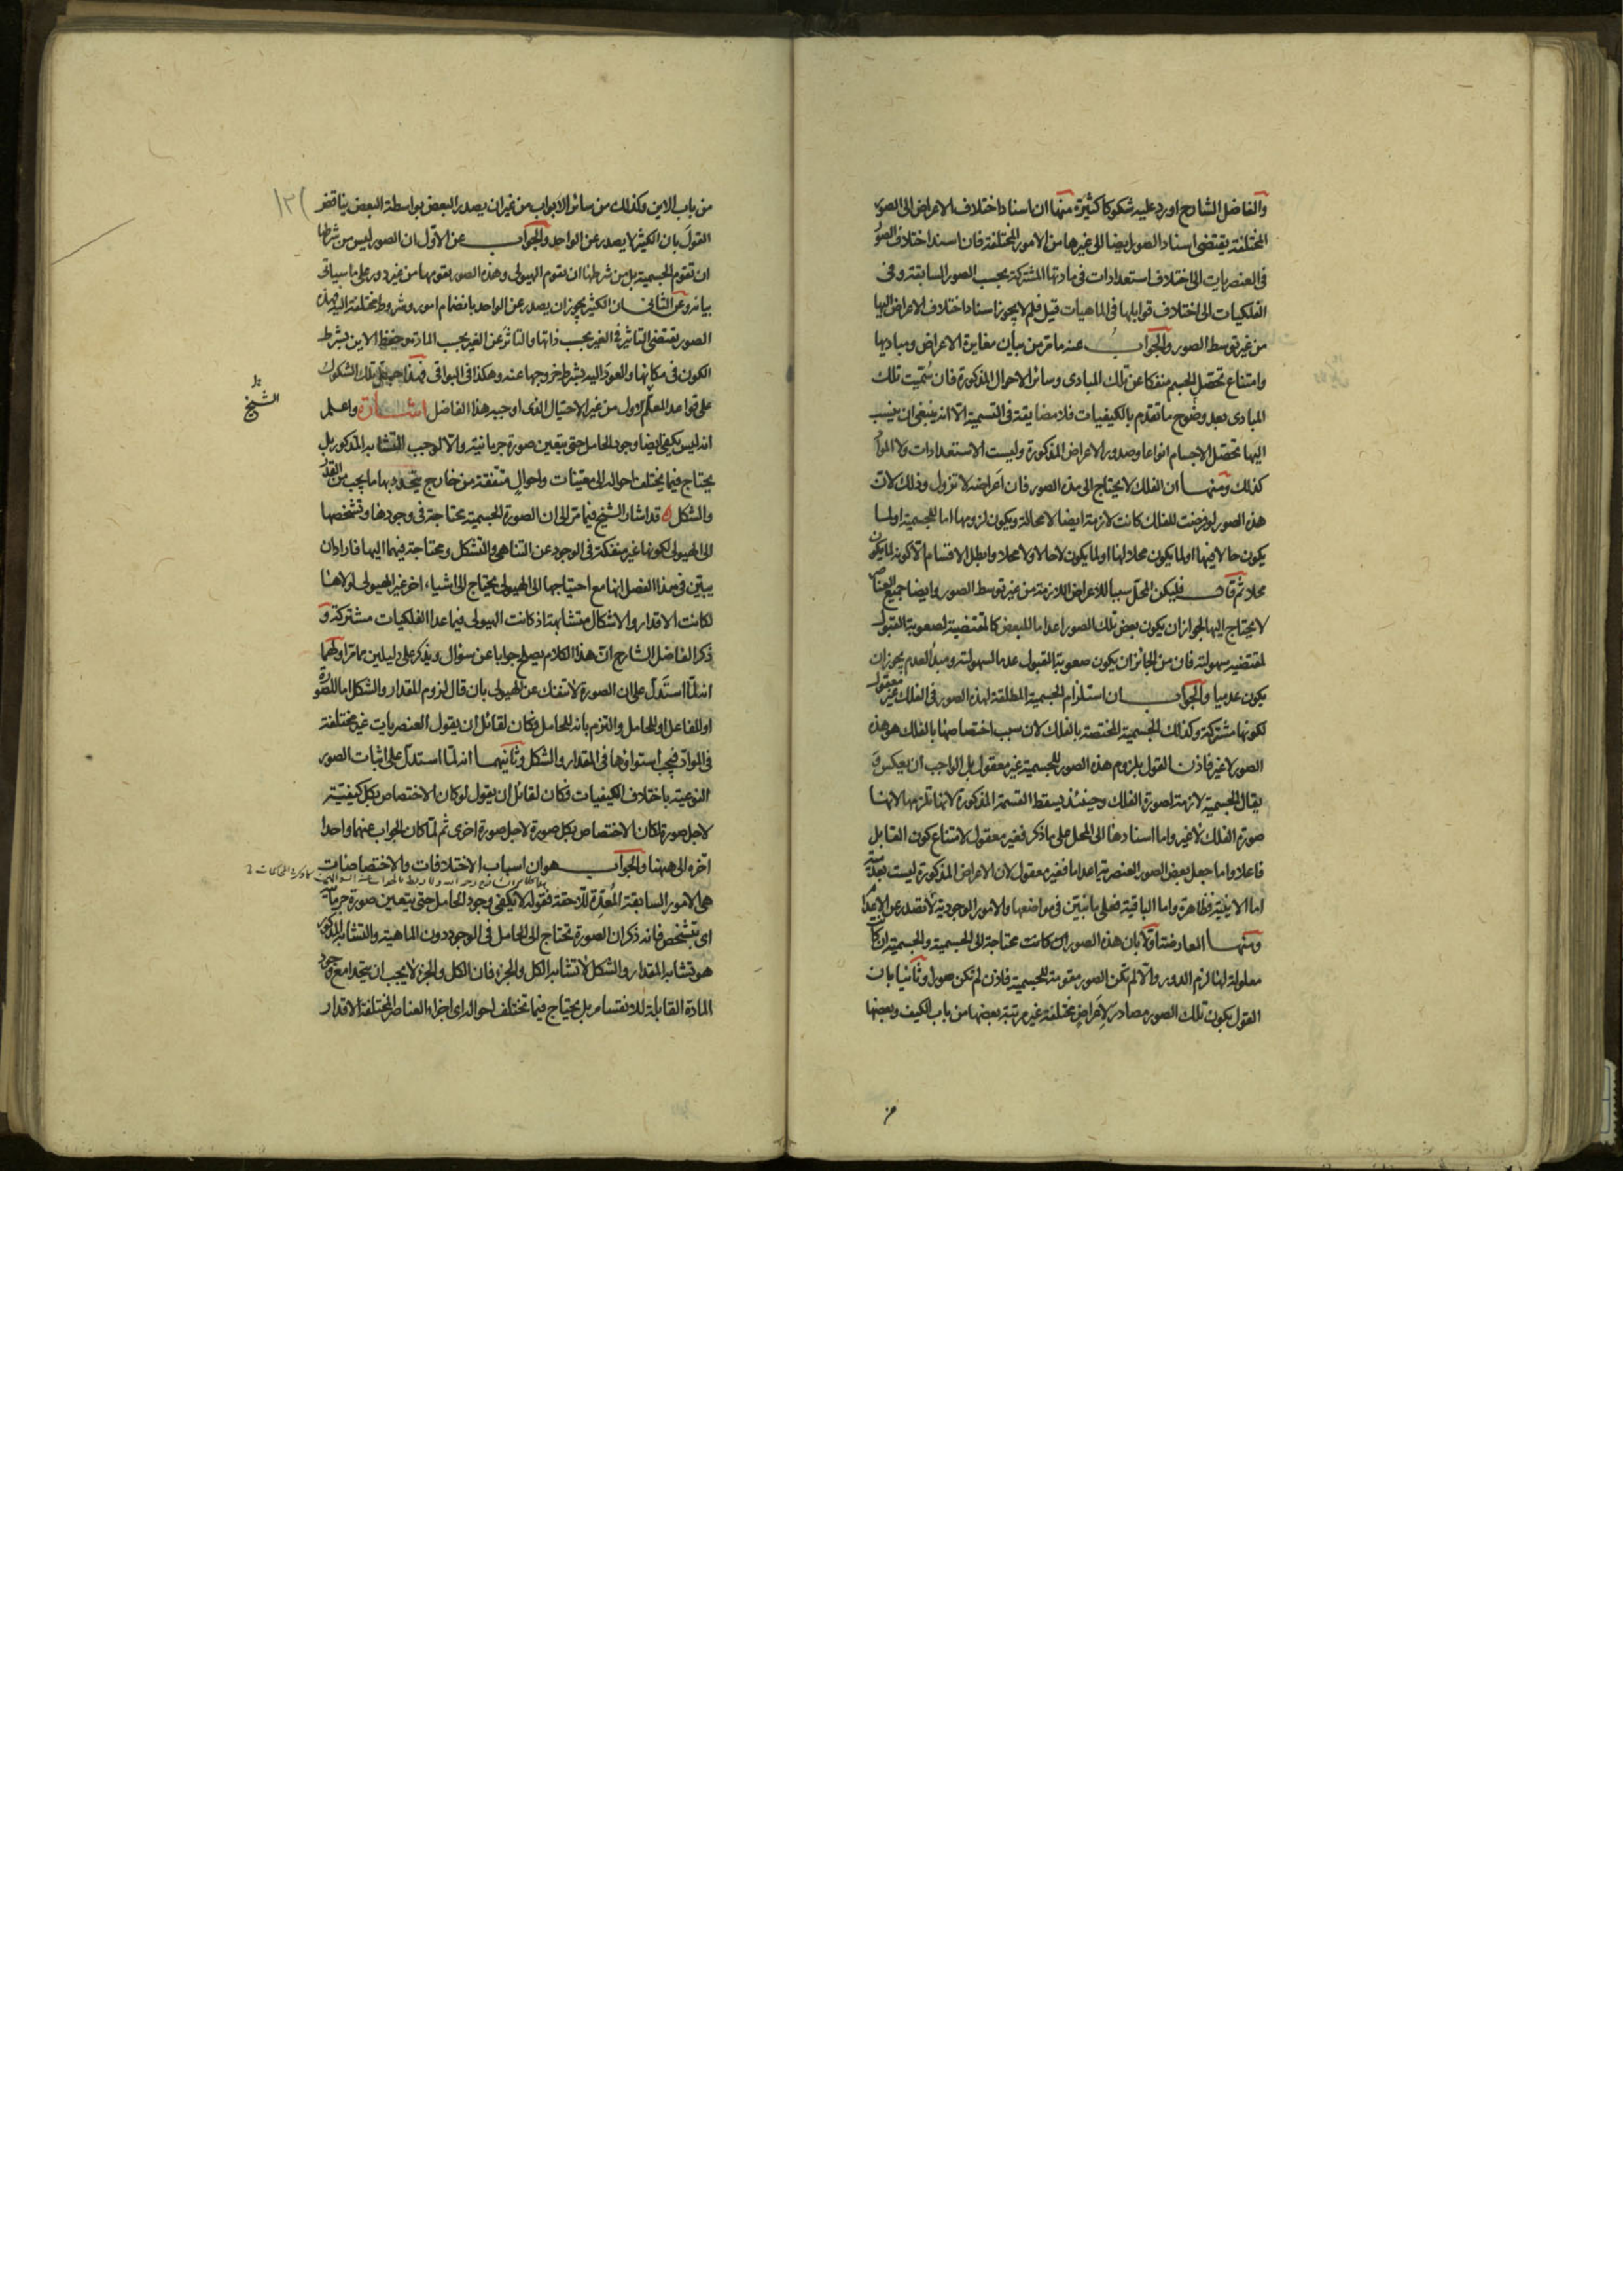 والفاضل الشارح اورد عليه شكوكا كثيرة منها ان اسناد اختلاف الاعراض الى الصور
المختلفة يقتضى اسناد الصور ايضا الى غيرها من الامور المختلفة فان اسند اختلاف الصور
فى العنصريات الى اختلاف استعدادات فى مادتها المشتركة بحسب الصور السابقة وفى
الفلكيات الى اختلاف قوابلها فى الماهيات قيل فلم لا يجوز اسناد اختلاف الاعراض اليها
من غير توسط الصور والجواب عنه ما مر من بيان مغايرة الاعراض ومباديها
وامتناع تحصل الجسم منفكا عن تلك المبادى وسائر الاحوال المذكورة فان سُمّيت تلك
المبادى بعد وضوح ما تقدم بالكيفيات فلا مضايقة فى التسمية الا انه ينبغى ان ينسب
اليها تحصّل الاجسام انواعا وصدور الاعراض المذكورة وليست الاستعدادات ولا المواد
كذلك ومنها ان الفلك لا يحتاج الى هذه الصور فان اَعراضه لا تزول وذلك لان
هذه الصور لو فرضت للفلك كانت لازمة ايضا لا محالة ويكون لزومها اما للجسمية او لما
يكون حالا فيها او لما يكون محلا لها او لما يكون لا حالا ولا محلا وابطل الاقسام الا كونه لما يكون
محلا ثم قال فليكن المحل سببا للاعراض اللازمة من غير توسط الصور وايضا جميع العناصر
لا يحتاج اليها لجواز ان يكون بعض تلك الصور اعداما للبعض كالمقتضية لصعوبة القبول
لمقتضيه سهولته فان من الجائز ان يكون صعوبة القبول عدما لسهولته ومبدأ العدم يجوز ان
يكون عدميا والجواب ان استلزام الجسمية المطلقة لهذه الصور فى الفلك غير معقول
لكونها مشتركة وكذلك الجسمية المختصة بالفلك لان سبب اختصاصها بالفلك هو هذه
الصور لا غير فاذن القول بلزوم هذه الصور للجسمية غير معقول بل الواجب ان يعكس و
يقال الجسمية لازمة لصورة الفلك وحينئذ يسقط القسمة المذكورة لانها تلزمها لانها
صورة الفلك لا غير واما اسنادها الى المحل على ما ذكر فغير معقول لامتناع كون القابل
فاعلا واما جعل بعض الصور العنصرية اعداما فغير معقول لان الاعراض المذكورة ليست بعدمية
اما الاينية فظاهرة واما الباقية فعلى ما تبيّن فى مواضعها والامور الوجودية لا تصدر عن الاعدام
ومنها المعارضة اولا بان هذه الصور ان كانت محتاجة الى الجسمية والجسمية ان كانت
معلولة لها لزم الدور والا لم تكن الصور مقومة للجسمية فاذن لم تكن صورا وثانيا بان
القول بكون تلك الصور مصادر لاَعراضٍ مختلفة غير مرتبة بعضها من باب الكيف وبعضها
من
من باب الاين وكذلك من سائر الابواب من غير ان يصدر البعض بواسطة البعض يناقض
القولَ بان الكثير لا يصدر عن الواحد والجواب عن الاول ان الصور ليس من شرطها
ان تقوم الجسمية بل من شرطها ان يقوم الهيولى وهذه الصور يقومها من غير دور على ما سياتى
بيانه وعن الثانى ان الكثير يجوز ان يصدر عن الواحد بانضمام امور وشروط مختلفة اليه فهذه
الصور تقتضى التاثير فى الغير بحسب ذاتها والتاثّر عن الغير بحسب المادة وحفظ الاين بشرط
الكون فى مكانها والعود اليه بشرط خروجها عنه وهكذا فى البواقى فهذا حل تلك الشكوك
على قواعد المعلّم الاول من غير الاحتيال الذى اوجبه هذا الفاضل اشارة واعلم
انه ليس يكفى ايضا وجود الحامل حتى يتعين صورة جرمانية والا لوجب التشابه المذكور بل
يحتاج فيما يختلف احواله الى معيّنات واحوالٍ متفقة من خارج يتحدد بها ما يجب من القدر
والشكل قد اشار الشيخ فيما مر الى ان الصورة الجسمية محتاجة فى وجودها وتشخصها
الى الهيولى لكونها غير منفكة فى الوجود عن التناهى والتشكل ومحتاجة فيهما اليها فاراد ان
يبيّن فى هذا الفصل انها مع احتياجها الى الهيولى يحتاج الى اشياء اخر غير الهيولى لولاها
لكانت الاقدار والاشكال متشابهة اذ كانت الهيولى فيما عدا الفلكيات مشتركة و
ذكر الفاضل الشارح انّ هذا الكلام يصلح جوابا عن سؤال ويذكر على دليلين مما مر اولهما
انه لمّا استدلّ على ان الصورة لا تنفك عن الهيولى بان قال لزوم المقدار والشكل اما للصورة
او للفاعل او للحامل والتزم بانه للحامل فكان لقائل ان يقول العنصريات غير مختلفة
فى الموادّ فيجب استواؤها فى المقدار والشكل وثانيهما انه لمّا استدل على اثبات الصور
النوعية باختلاف الكيفيات فكان لقائل ان يقول لو كان الاختصاص بكل كيفيّة
لاجل صورة لكان الاختصاص بكل صورة لاجل صورة اخرى ثم لما كان الجواب عنهما واحدا
اخّره الى ههنا والجواب هو ان اسباب الاختلافات والاختصاصات
هى الامور السابقة المُعِدّة للاحقة فقوله لا يكفى وجود الحامل حتى يتعين صورة جرمانية
اى تتشخص فانه ذكر ان الصورة تحتاج الى الحامل فى الوجود دون الماهية والتشابه المذكور
هو تشابه المقدار والشكل لا تشابه الكل والجزء فان الكل والجزء لا يجب ان يتحدا مع وجود
المادة القابلة للانقسام بل يحتاج فيما تختلف احواله اى اجزاء العناصر المختلفة الاقدار
الشيخ